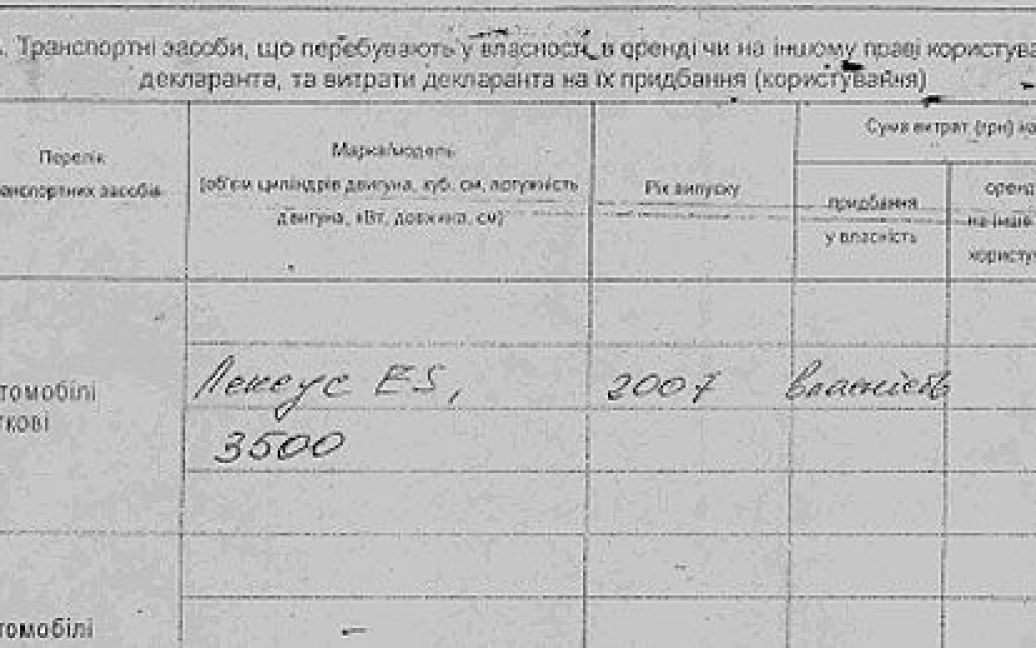 . Транспортні засоби, що перебувають у власності, в оренді чи на іншому праві користува
декларанта, та витрати декларанта на їх придбання (користування)
Перелік
анспортних засобів
Марка/модель
(об'єм циліндрів двигуна, куб. см, потужність
двигуна, кВт, довжина, см)
Рік випуску
Сума витрат (грн) на
придбання
у власність
оренд
на інше
користу
томобілі
гкові
Лексус ES,
3500
2007
власність
томобілі
–